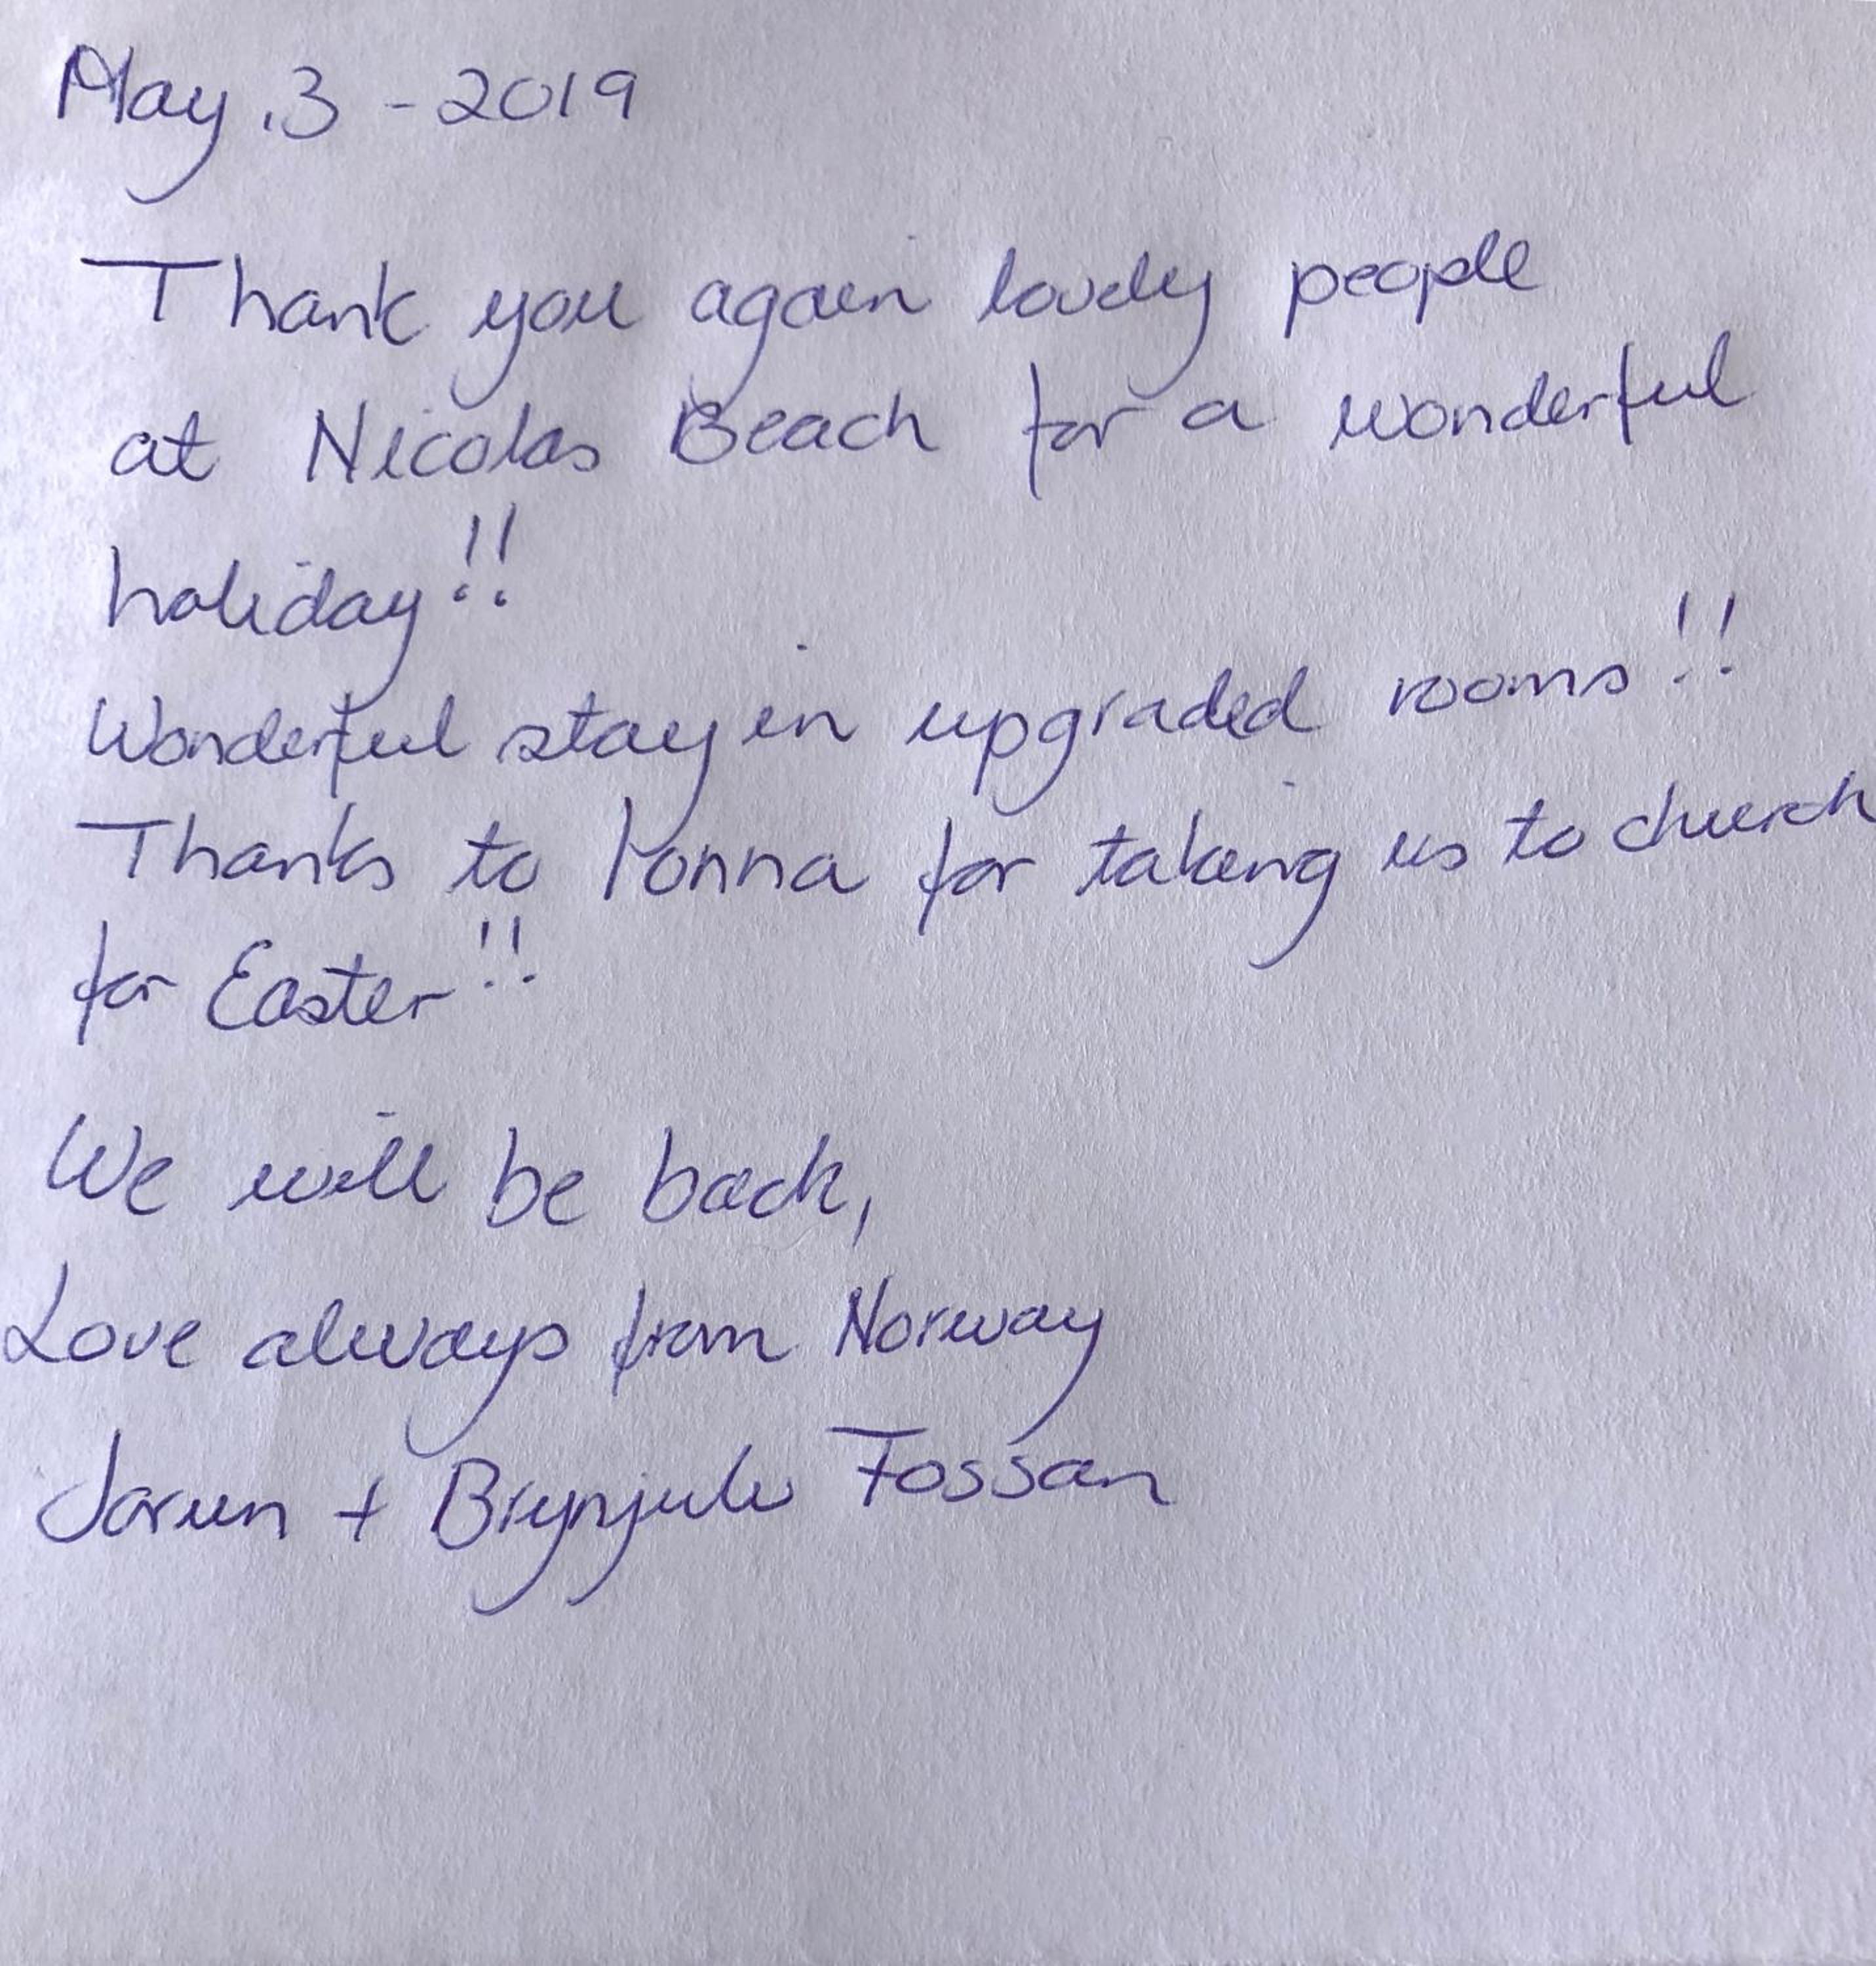 May .3 - 2019
Thank you again lovely people
at Nicolas Beach for a wonderful
holiday!!
Wonderful stay in upgraded rooms!!
Thanks to Yonna for taking us to church
for Easter!!
We will be back,
Love always from Norway
Jorun + Brynjulv Fossan